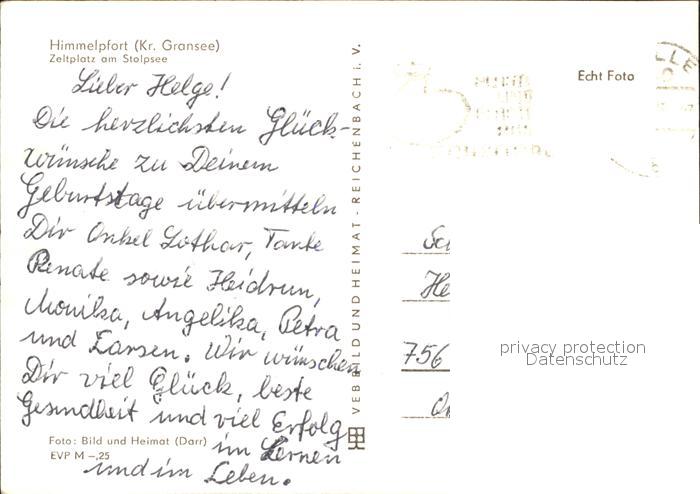 Himmelpfort (Kr. Gransee)
Zeltplatz am Stolpsee
Lieber Helge!
Die herzlichsten Glück-
wünsche zu Deinem
Geburtstage übermitteln
Dir Onkel Lothar, Tante
Renate sowie Heidrun,
Monika, Angelika, Petra
und Larsen. Wir wünschen
Dir viel Glück, beste
Gesundheit und viel Erfolg
im Lernen
und im Leben.
Foto: Bild und Heimat (Darr)
EVP M –,25
VEB BILD UND HEIMAT · REICHENBACH i. V.
Echt Foto
756
privacy protection
Datenschutz